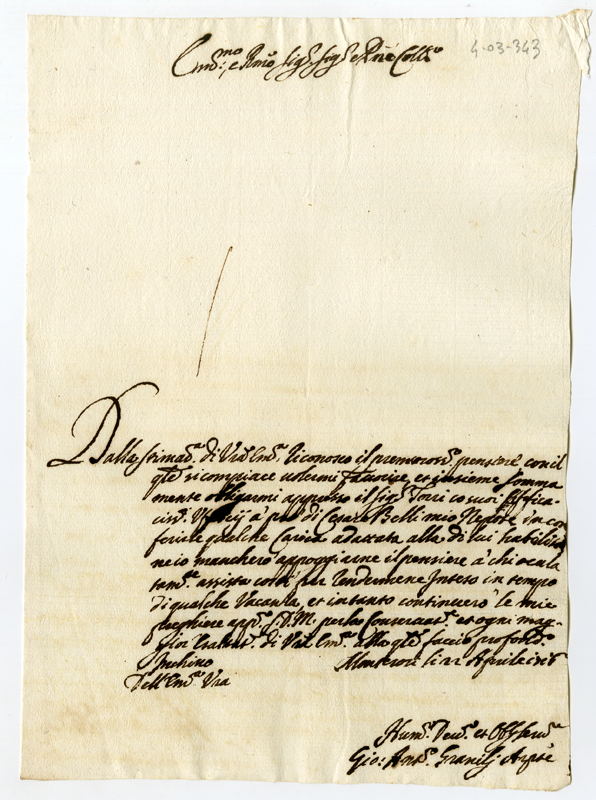 4-03-343
Em.mo e Rmo Sig.r Sig.r e Pne Coll.mo
Dalla stimad.a di Vra Em.a riconosco il premuroso pensiere con il
q.le si compiace volermi favorire, et insieme somma
mente obligarmi appresso il Sig.r Torri co suoi efficacis
cis.i Ufficij à prò di Cesare Belli mio Nepote in con
ferirle qualche Carica adattata alla di lui habilità
ne io mancherò appoggiarne il pensiere à chi
tam.te assista costì per rendermene inteso in tempo
di qualche Vacanza, et intanto continuerò le mie
preghiere app.o S.D.M. per la conservat.e et ogni mag-
gior esaltat.e di Vra Em.a alla q.le faccio profond.o
Inchino
Aprile
Dell'Em.a Vra
Hum.o Dev.o et Obl. Serv.re
Gio: Ant.o